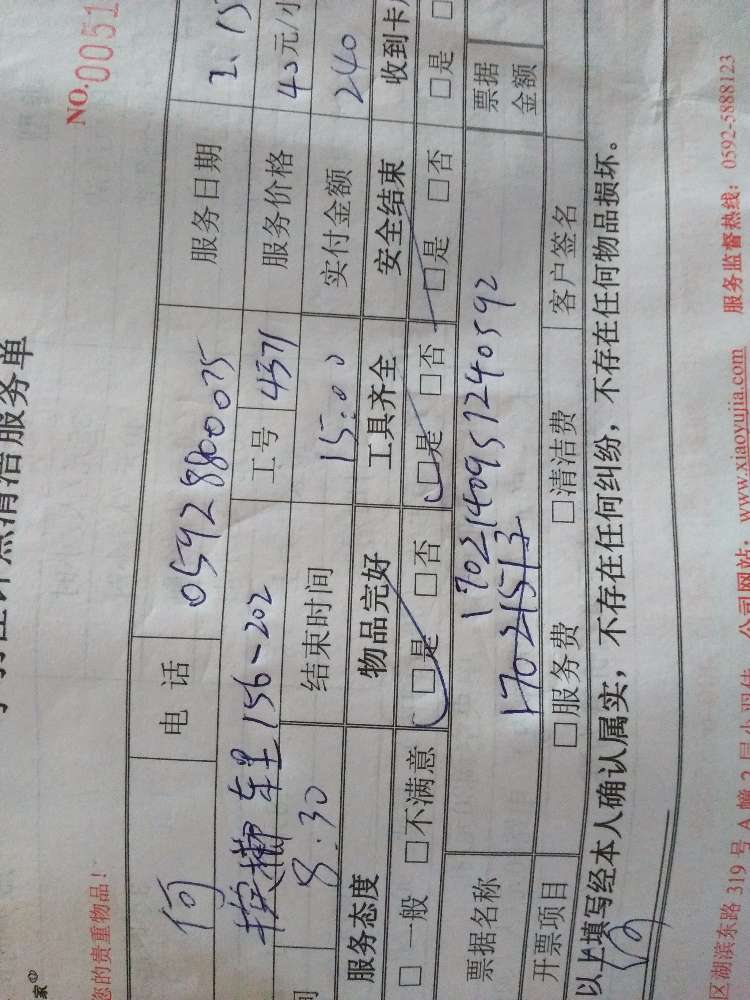 清洁服务单
您的贵重物品！
NO.0051
何 电话 05928800075 服务日期 2.15
车里156-202 工号 4371 服务价格 40元/小
8:30 结束时间 15:00 实付金额 240
服务态度 物品完好 工具齐全 安全结束 收到卡
□一般 □不满意 □是 □否 □是 □否 □是 □否 □是
票据名称 1702140951240592 票据金额
开票项目 □服务费 □清洁费 客户签名
以上填写经本人确认属实，不存在任何纠纷，不存在任何物品损坏。
区湖滨东路319号A幢2层小羽佳 公司网站：www.xiaoyujia.com 服务监督热线：0592-5888123
家